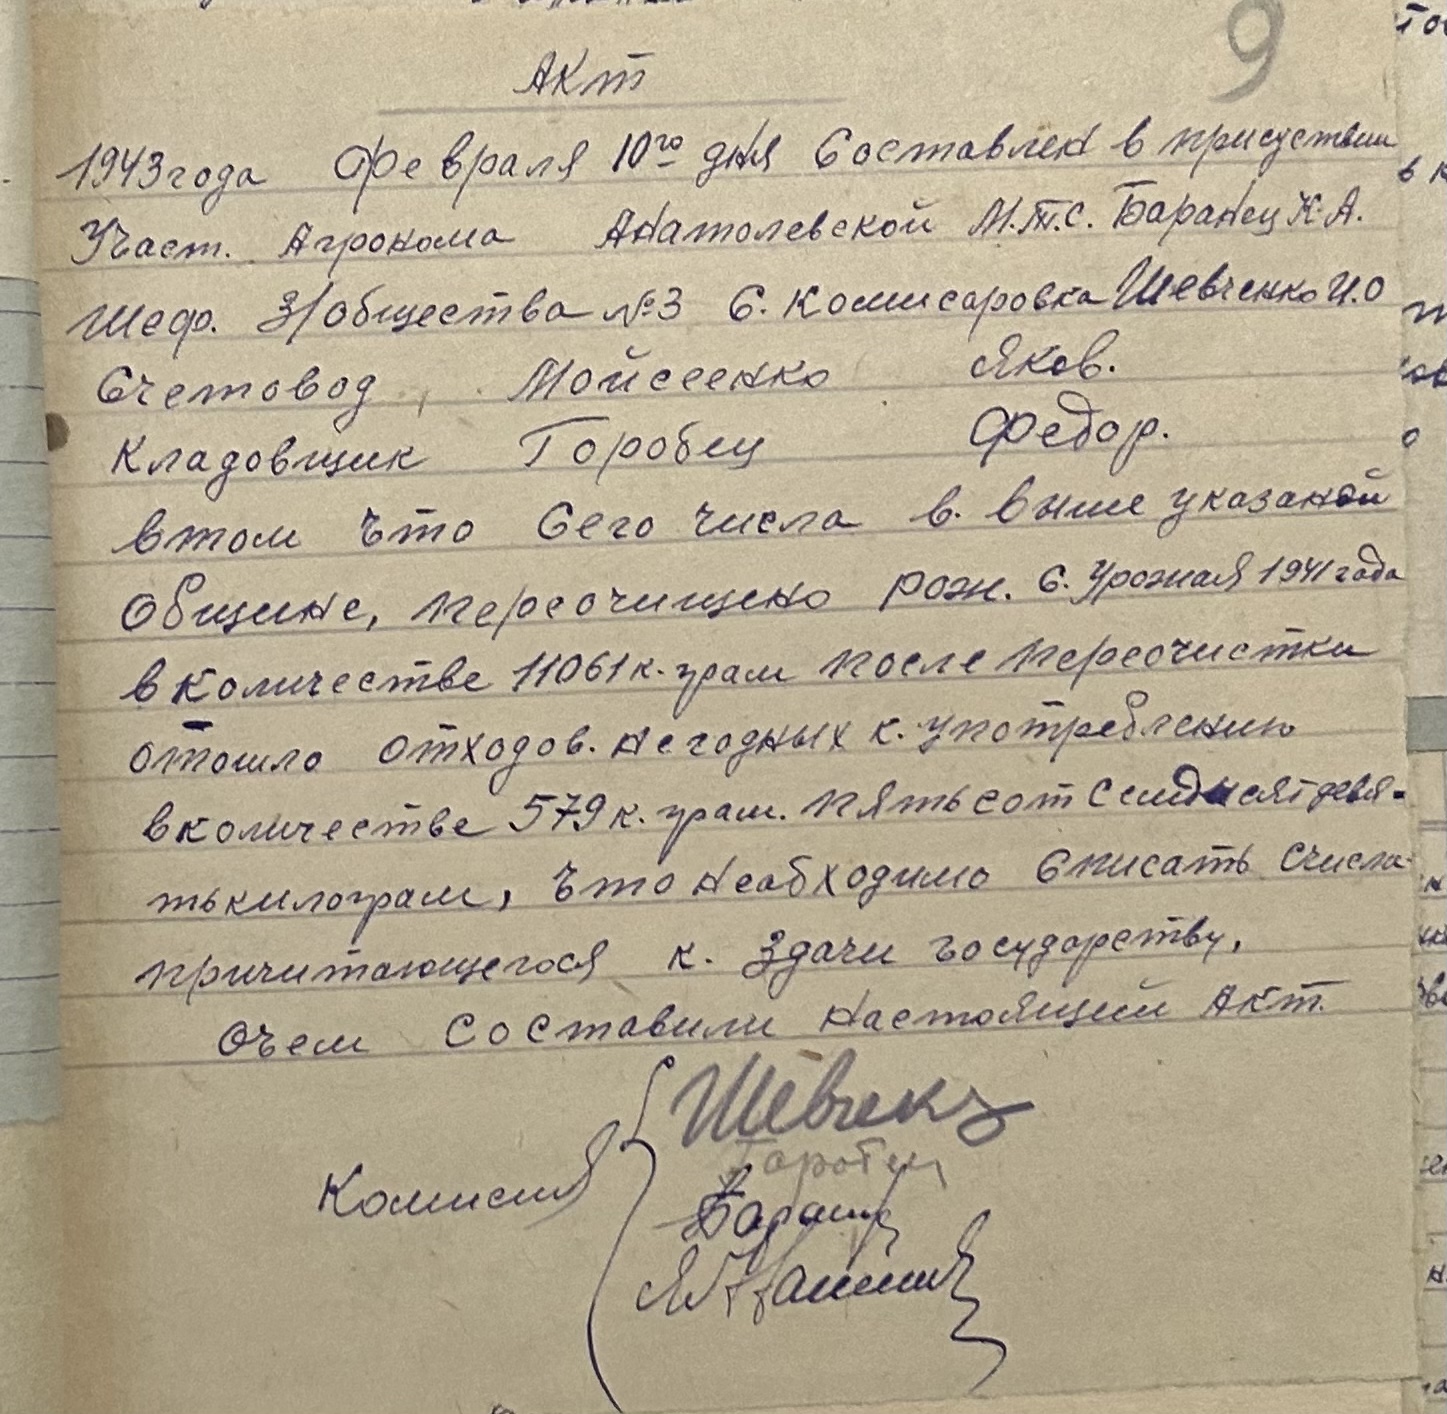 9
Акт
1943 года Февраля 10го дня Составлен в присудствии
Участ. Агронома Анатолевской М.Т.С. Баранец К.А.
Шеф. З/общества №3 С. Комисаровка Шевченко И.О
Счетовод, Мойсеенко Яков.
Кладовщик Горобец Федор.
втом что Сего числа в. выше указаной
Общине, переочищено рож. с. Урожая 1941 года
в количестве 11061 к. грам после переочистки
отошло отходов. негодных к. употреблению
вколичестве 579 к. грам. пятьсот семдисят девя-
тькилограм, что необходимо Списать счисла
причитающегося к. Здачи государству,
Очем составили настоящий Акт.
Комисия
Шевченко
Горобец
Баранец